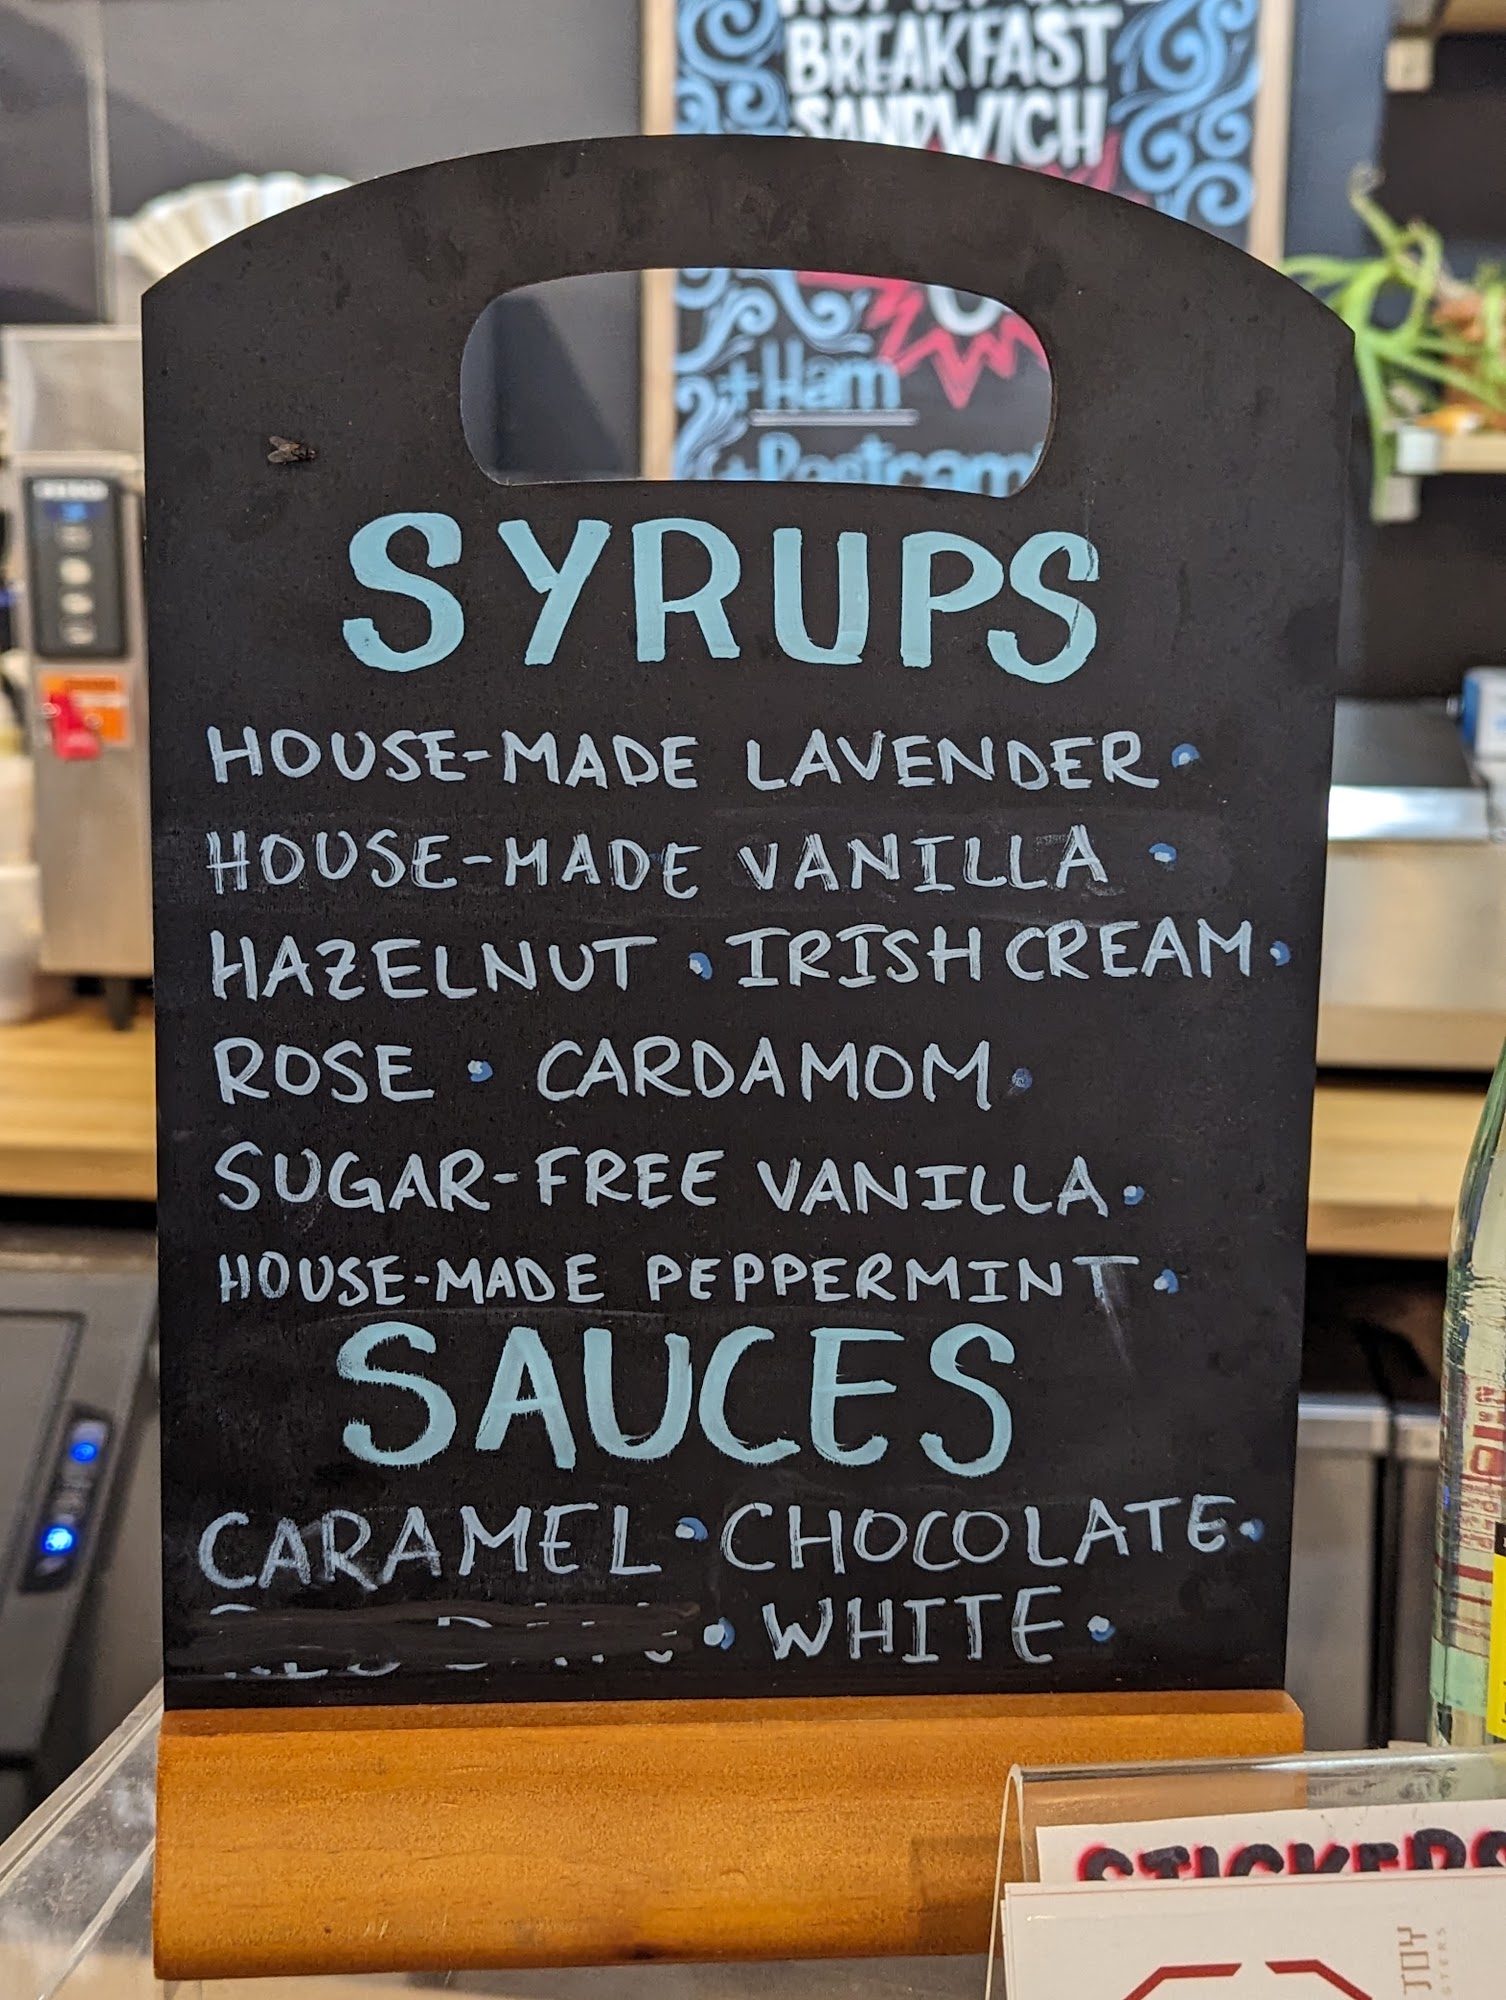 BREAKFAST
SANDWICH
+Ham
SYRUPS
HOUSE-MADE LAVENDER •
HOUSE-MADE VANILLA •
HAZELNUT • IRISH CREAM •
ROSE • CARDAMOM •
SUGAR-FREE VANILLA •
HOUSE-MADE PEPPERMINT •
SAUCES
CARAMEL • CHOCOLATE •
• WHITE •
STICKERS
JOY